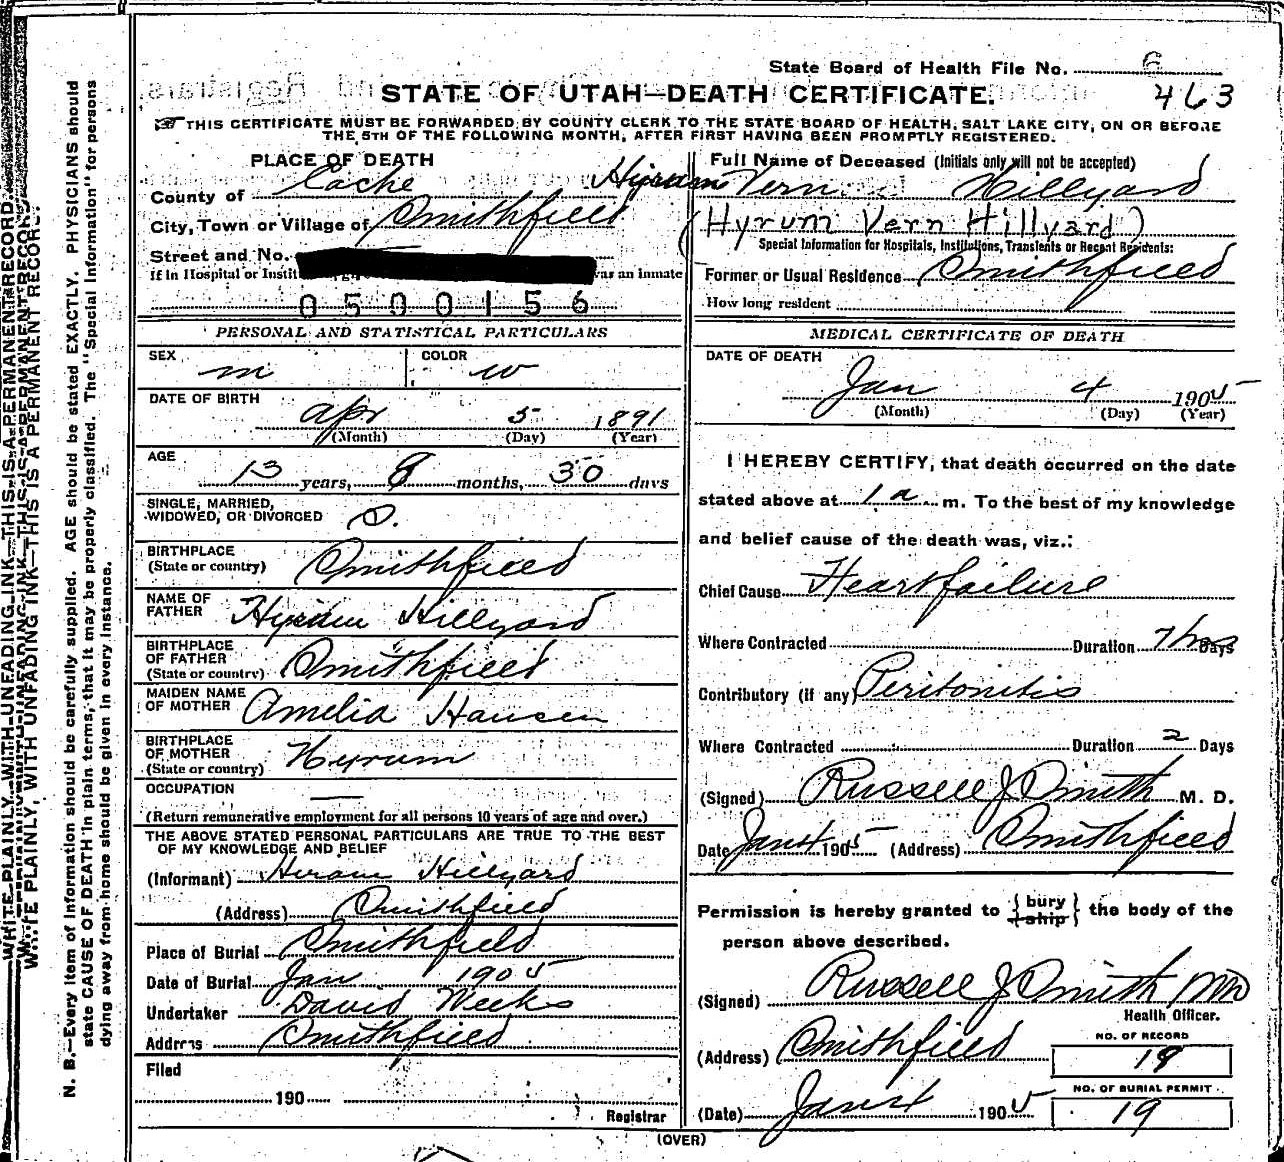 State Board of Health File No. 6
463
STATE OF UTAH—DEATH CERTIFICATE.
THIS CERTIFICATE MUST BE FORWARDED BY COUNTY CLERK TO THE STATE BOARD OF HEALTH, SALT LAKE CITY, ON OR BEFORE
THE 5TH OF THE FOLLOWING MONTH, AFTER FIRST HAVING BEEN PROMPTLY REGISTERED.
PLACE OF DEATH
County of Cache
City, Town or Village of Smithfield
Street and No.
If in Hospital or Instit was an inmate
0500156
PERSONAL AND STATISTICAL PARTICULARS
SEX m COLOR w
DATE OF BIRTH
Apr 5 1891
(Month) (Day) (Year)
AGE
13 years, 8 months, 30 days
SINGLE, MARRIED,
WIDOWED, OR DIVORCED S.
BIRTHPLACE
(State or country) Smithfield
NAME OF
FATHER Hyrum Hillyard
BIRTHPLACE
OF FATHER
(State or country) Smithfield
MAIDEN NAME
OF MOTHER Amelia Hansen
BIRTHPLACE
OF MOTHER
(State or country) Hyrum
OCCUPATION —
(Return remunerative employment for all persons 10 years of age and over.)
THE ABOVE STATED PERSONAL PARTICULARS ARE TRUE TO THE BEST
OF MY KNOWLEDGE AND BELIEF
(Informant) Hiram Hillyard
(Address) Smithfield
Place of Burial Smithfield
Date of Burial Jan 1905
Undertaker David Weeks
Address Smithfield
Filed
190
Registrar
Full Name of Deceased (Initials only will not be accepted)
Hyrum Vern Hillyard
(Hyrum Vern Hillyard)
Special Information for Hospitals, Institutions, Transients or Recent Residents:
Former or Usual Residence Smithfield
How long resident
MEDICAL CERTIFICATE OF DEATH
DATE OF DEATH
Jan 4 1905
(Month) (Day) (Year)
I HEREBY CERTIFY, that death occurred on the date
stated above at 1 a m. To the best of my knowledge
and belief cause of the death was, viz.:
Chief Cause Heart failure
Where Contracted Duration 7 hrs Days
Contributory (if any) Peritonitis
Where Contracted Duration 2 Days
(Signed) Russell J Smith M. D.
Date Jan 4 1905 (Address) Smithfield
Permission is hereby granted to {bury ship} the body of the
person above described.
(Signed) Russell J Smith MD
Health Officer.
(Address) Smithfield
NO. OF RECORD
18
NO. OF BURIAL PERMIT
19
(Date) Jan 4 1905
(OVER)
WRITE PLAINLY, WITH UNFADING INK—THIS IS A PERMANENT RECORD.
N. B.—Every item of Information should be carefully supplied. AGE should be stated EXACTLY. PHYSICIANS should
state CAUSE OF DEATH in plain terms, that it may be properly classified. The "Special Information" for persons
dying away from home should be given in every instance.